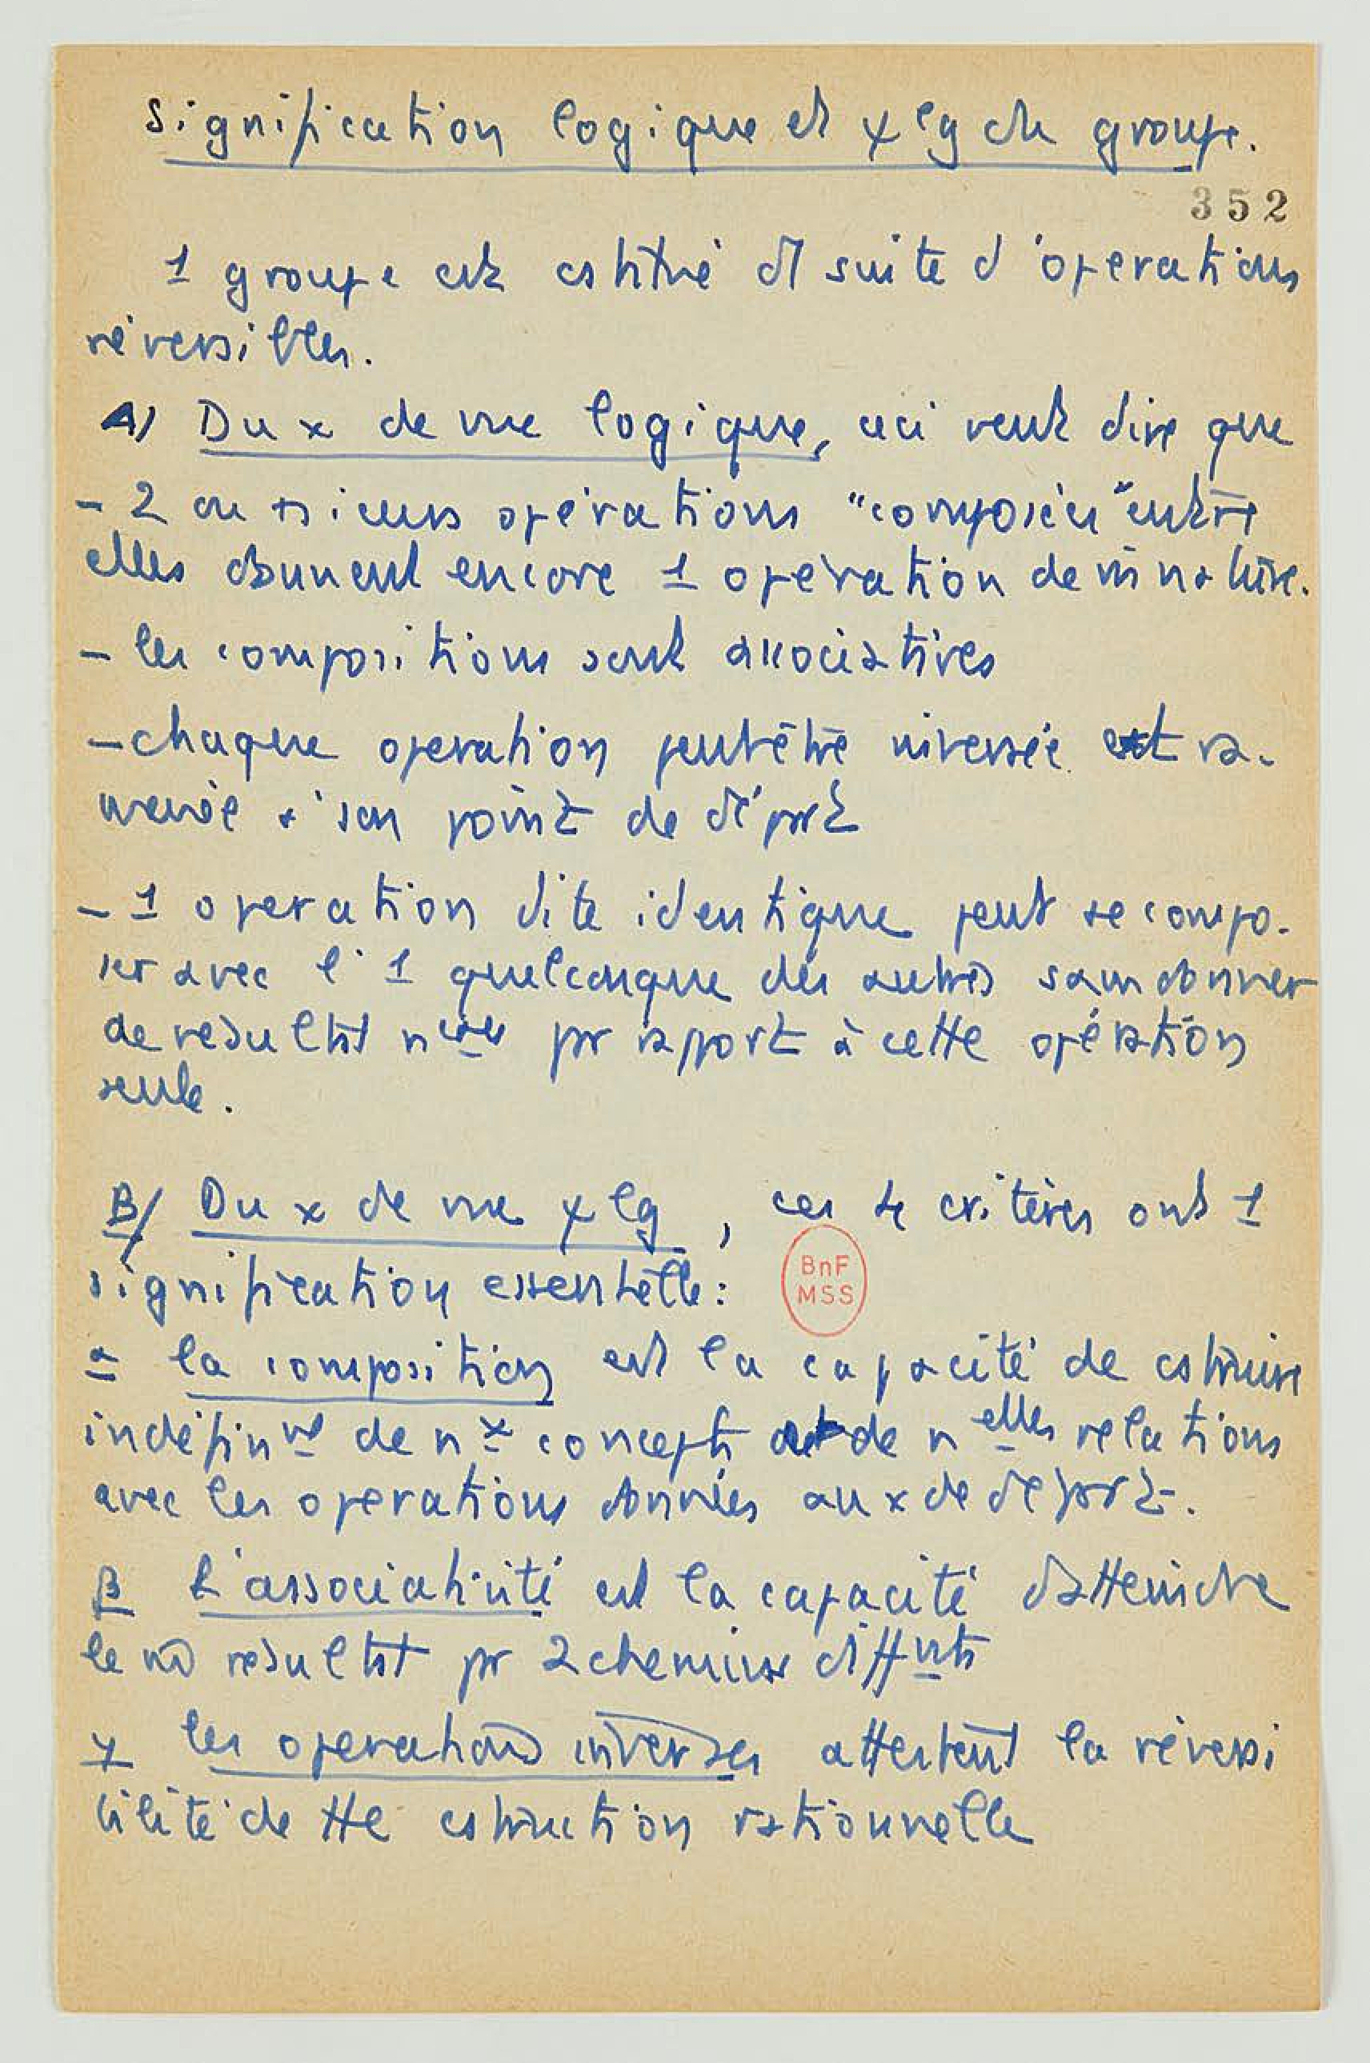 Signification logique et ψ lg du groupe.
352
1 groupe est cstitué d'1 suite d'operations
réversibles.
A) Du x de vue logique, ceci veut dire que
- 2 ou +sieurs opérations "composées" entre
elles donnent encore 1 opération de m̂ nature.
- les compositions sont associatives
- chaque operation peut être inversée et ra-
menée à son point de départ
- 1 operation dite identique peut se compo-
ser avec l'1 quelconque des autres sans donner
de résultat nveau pr rapport à cette opération
seule.
B/ Du x de vue ψ lg, ces 4 critères ont 1
signification essentielle:
α la composition est la capacité de cstruire
indéfinnt de nx concepts et de nelles relations
avec les operations données au x de départ.
β L'associativité est la capacité d'atteindre
le m̂ résultat pr 2 chemins diffnts
γ les operations inverses attestent la réversi
bilité de tte cstruction rationnelle
BnF
MSS